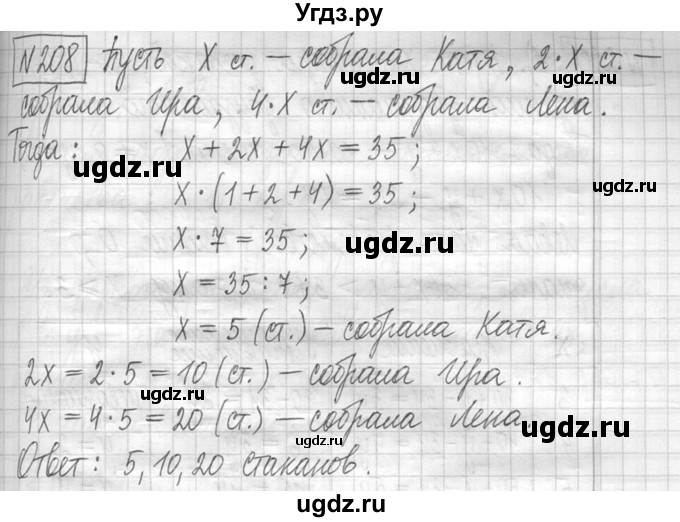 Угдз.ру
№208 Пусть х ст. — собрала Катя, 2·х ст. —
собрала Ира, 4·х ст. — собрала Лена.
Тогда: х + 2х + 4х = 35;
х·(1+2+4) = 35;
х·7 = 35;
х = 35 : 7;
х = 5 (ст.) — собрала Катя.
2х = 2·5 = 10 (ст.) — собрала Ира.
4х = 4·5 = 20 (ст.) — собрала Лена.
Ответ: 5, 10, 20 стаканов.
ugdz.ru
ugdz.ru
ugdz.ru
ugdz.ru
ugdz.ru
ugdz.ru
ugdz.ru
ugdz.ru
ugdz.ru
ugdz.ru